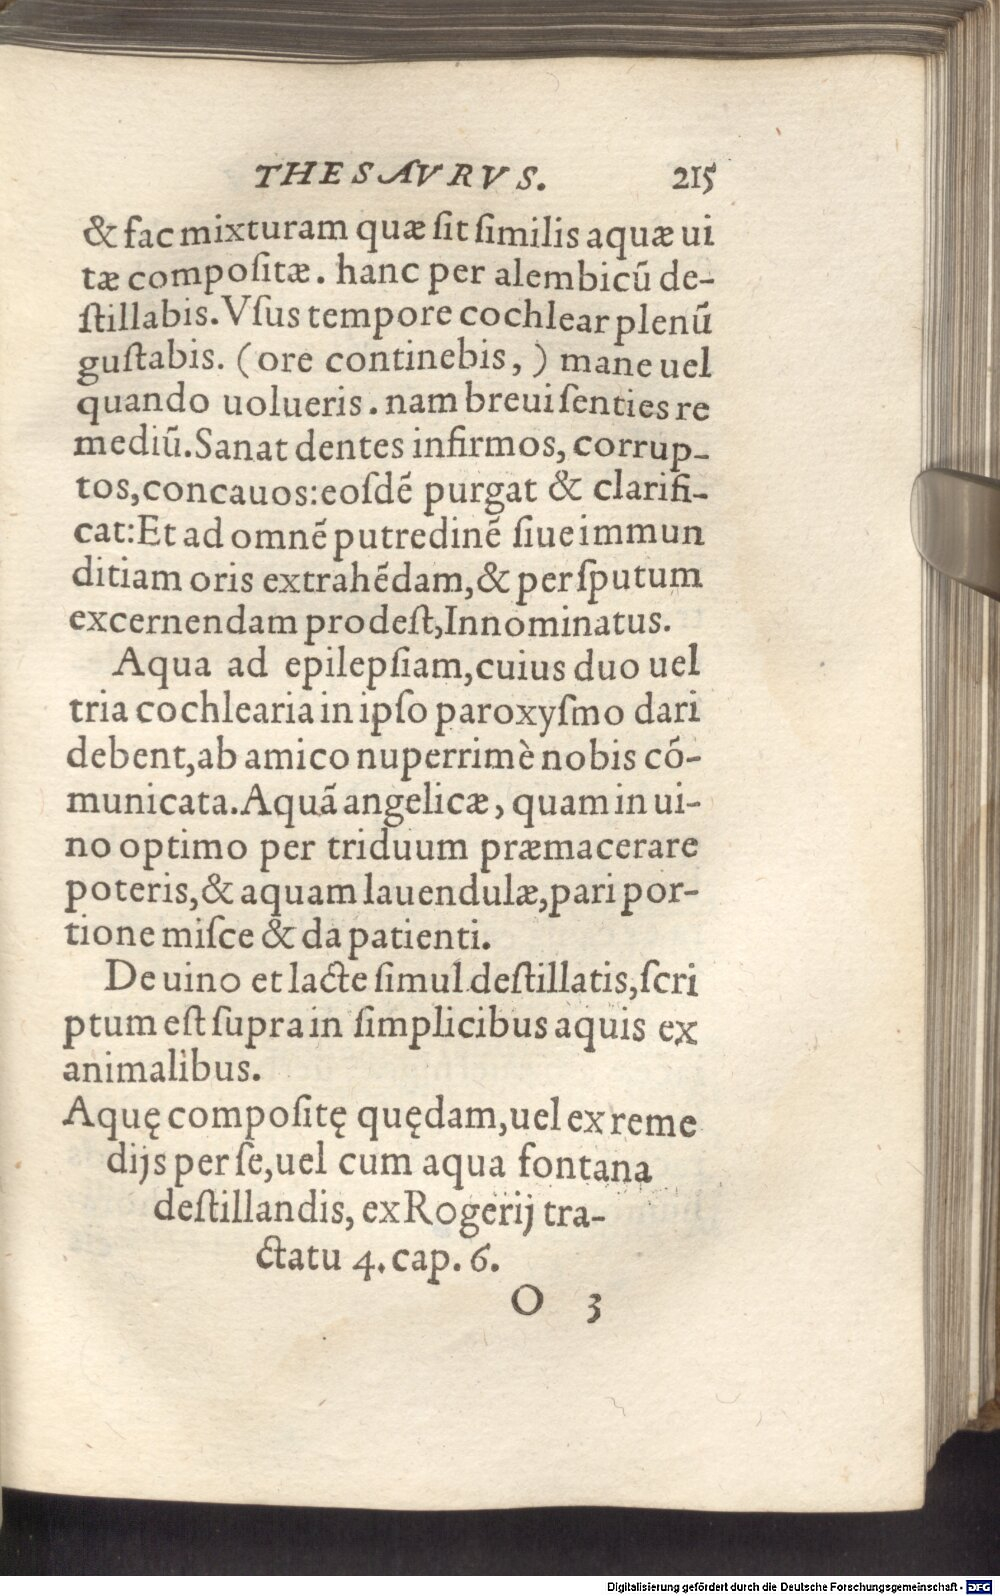 THESAVRVS. 215
& fac mixturam quæ ſit ſimilis aquæ ui
tæ compoſitæ. hanc per alembicũ de-
ſtillabis. Vſus tempore cochlear plenũ
guſtabis. (ore continebis,) mane uel
quando uolueris. nam breui ſenties re
mediũ. Sanat dentes infirmos, corrup-
tos, concauos: eoſdẽ purgat & clarifi-
cat: Et ad omnẽ putredinẽ ſiue immun
ditiam oris extrahẽdam, & per ſputum
excernendam prodeſt, Innominatus.
Aqua ad epilepſiam, cuius duo uel
tria cochlearia in ipſo paroxyſmo dari
debent, ab amico nuperrimè nobis cõ-
municata. Aquã angelicæ, quam in ui-
no optimo per triduum præmacerare
poteris, & aquam lauendulæ, pari por-
tione miſce & da patienti.
De uino et lacte ſimul deſtillatis, ſcri
ptum eſt ſupra in ſimplicibus aquis ex
animalibus.
Aquę compoſitę quędam, uel ex reme
dijs per ſe, uel cum aqua fontana
deſtillandis, ex Rogerij tra-
ctatu 4. cap. 6.
O 3
Digitalisierung gefördert durch die Deutsche Forschungsgemeinschaft - DFG